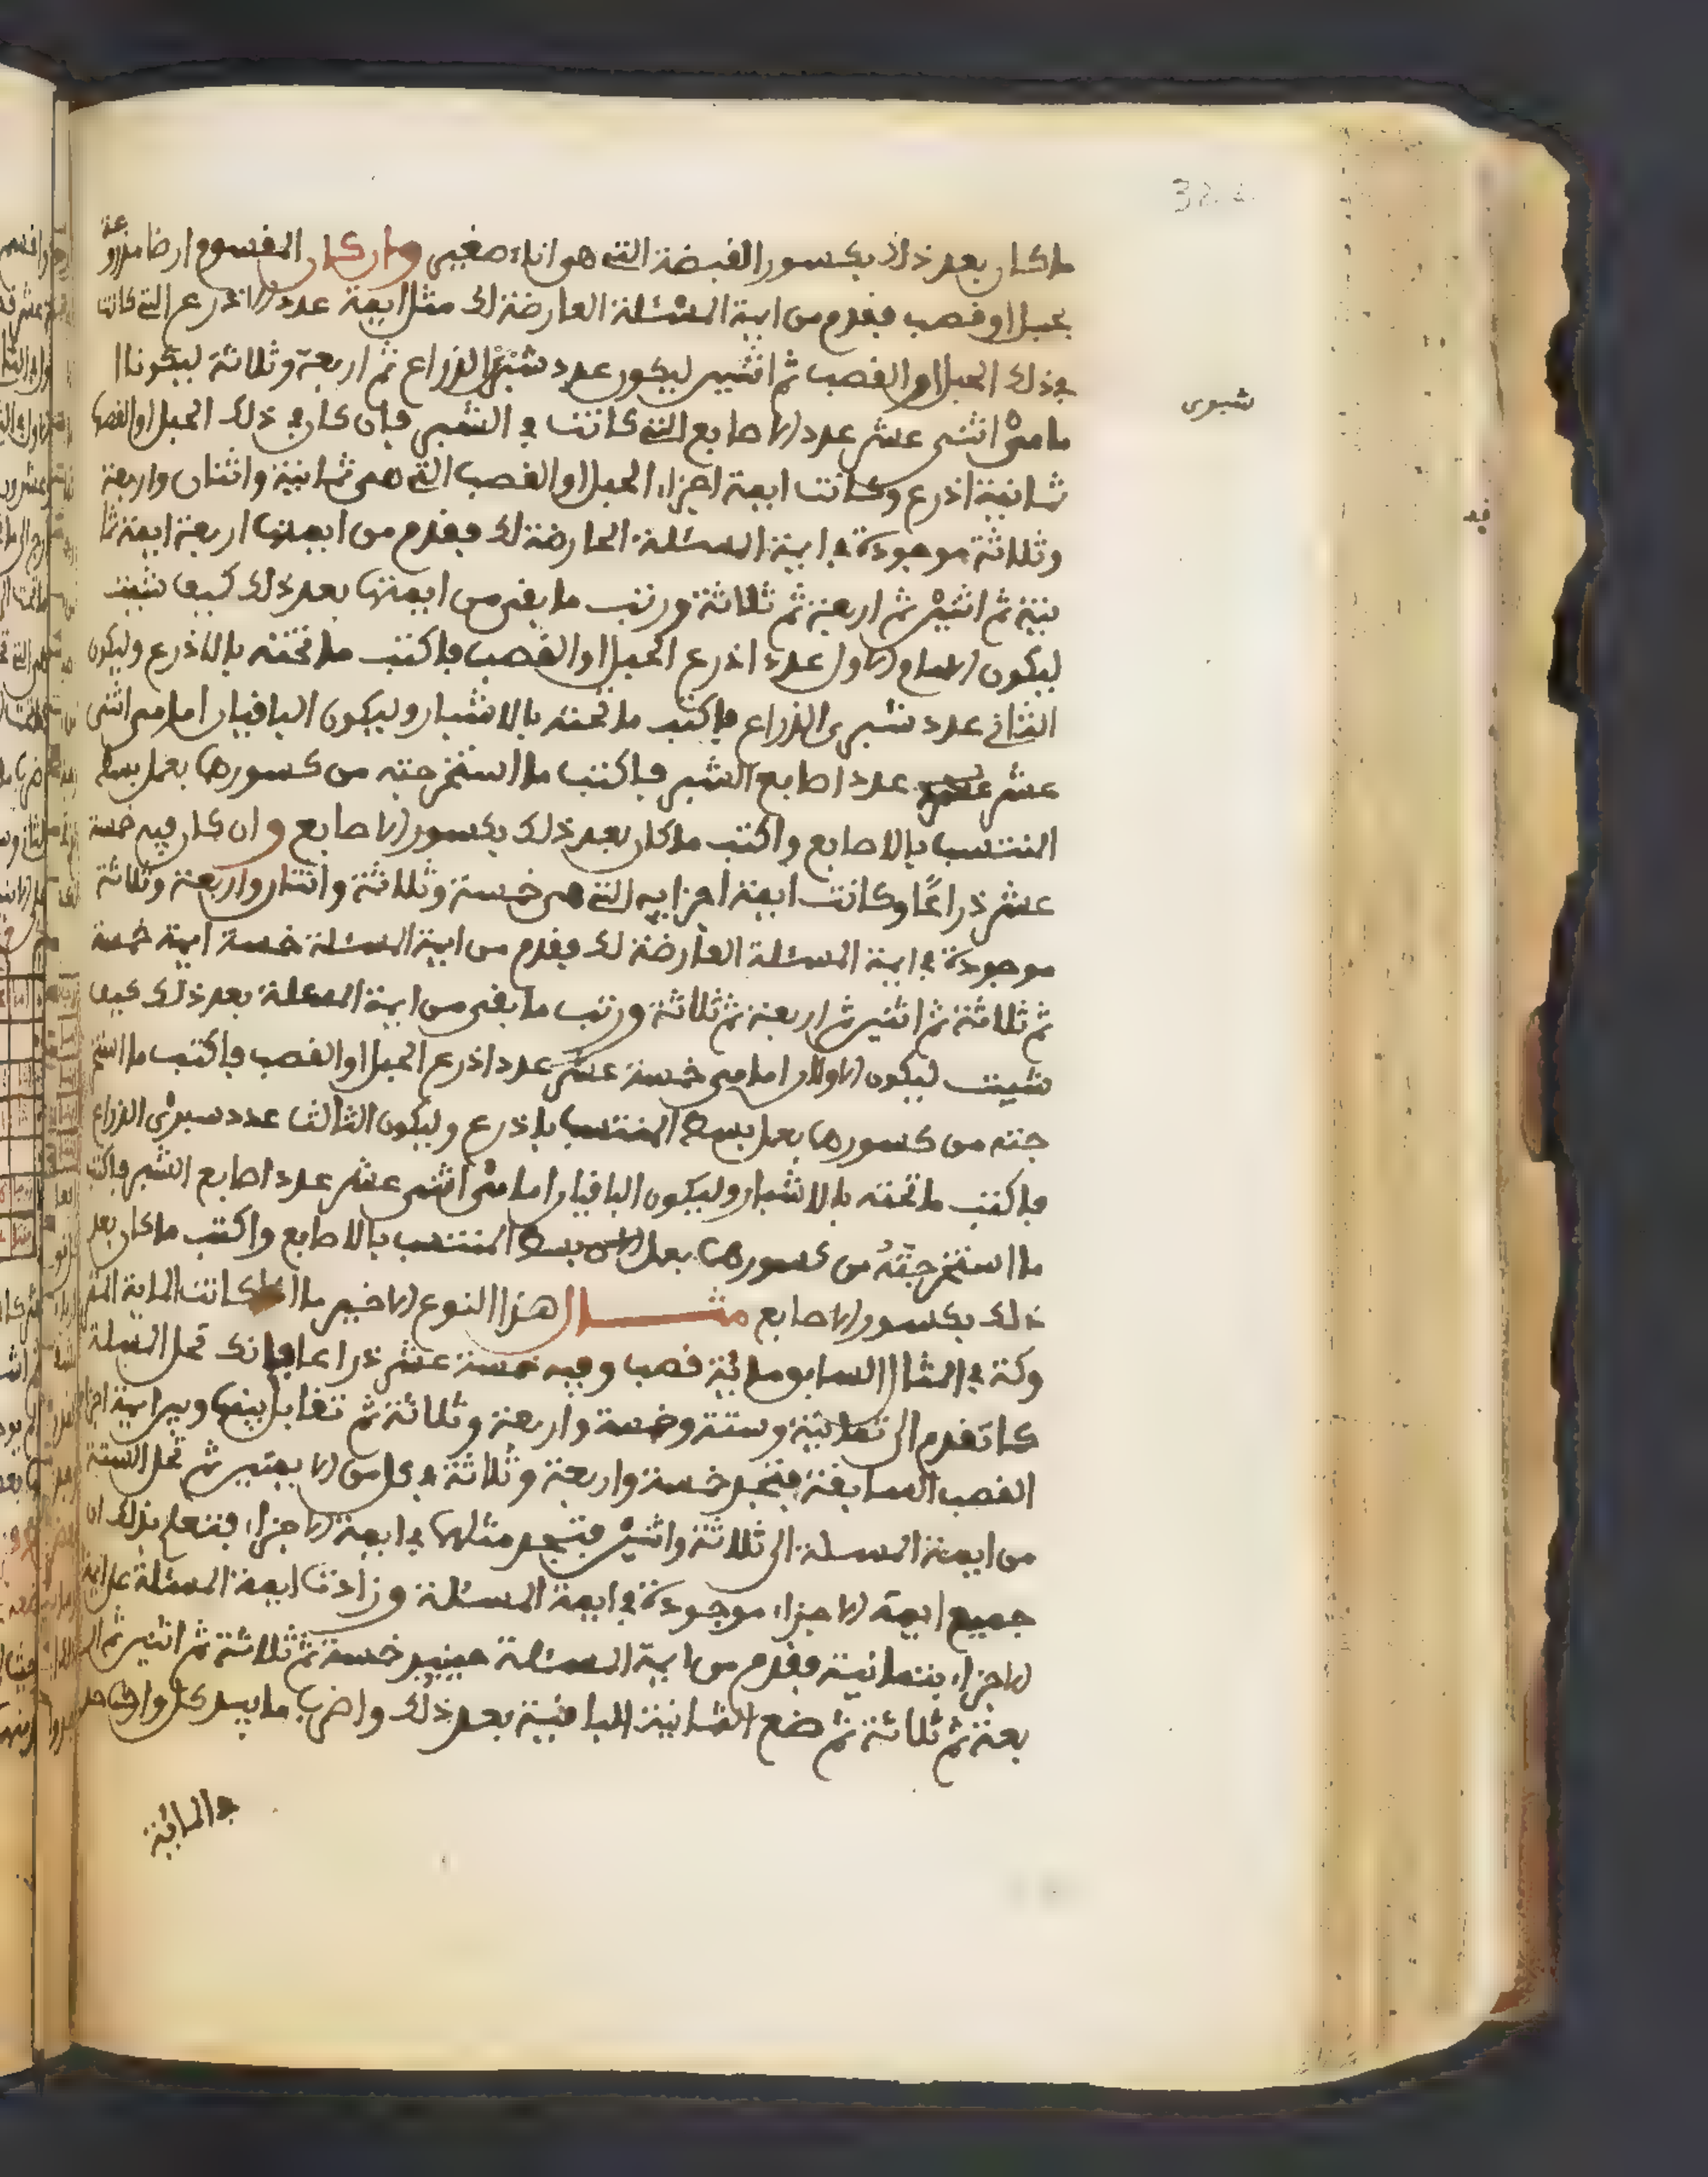 ما كان بعد ذلك بكسور القبضة التي هو اناء صغير وان كان المقسوم ارضا مزروعة
بحبل او قصب فقدم من ايمة المسئلة العارضة لك مثل ايمة عدد الاذرع التي كانت
في ذلك الحبل او القصب ثم اثنين ليكون عدد شبرى الذراع ثم اربعة وثلاثة ليكونا ا
مامى اثنى عشر عدد الاصابع التي كانت في الشبر فان كان في ذلك الحبل او القصب
ثمانية اذرع وكانت ايمة اجزاء الحبل او القصب التي هي ثمانية واثنان واربعة
وثلاثة موجودة في ايمة المسئلة العارضة لك فقدم من ايمتها اربعة ايمة ثما
نية ثم اثنين ثم اربعة ثم ثلاثة ورتب ما بقى من ايمتها بعد ذلك كيف شيت
ليكون الامام الاول عدد اذرع الحبل او القصب فاكتب ما تحته بالاذرع وليكون
الثانى عدد شبرى الذراع فاكتب ما تحته بالاشبار وليكون الباقيان امامى اثنى
عشر عدد اصابع الشبر فاكتب ما استخرجته من كسورها بعمل بسط
المنتسب بالاصابع واكتب ما كان بعد ذلك بكسور الاصابع وان كان فيه خمسة
عشر ذراعًا وكانت ايمة اجزايه التي هي خمسة وثلاثة واثنان واربعة وثلاثة
موجودة في ايمة المسئلة العارضة لك فقدم من ايمة المسئلة خمسة ايمة خمسة
ثم ثلاثة ثم اثنين ثم اربعة ثم ثلاثة ورتب ما بقى من ايمة المسئلة بعد ذلك كيف
شيت ليكون الاولان امامى خمسة عشر عدد اذرع الحبل او القصب فاكتب ما استخر
جته من كسورها بعمل بسط المنتسب باذرع وليكون الثالث عدد سبرى الذراع
فاكتب ما تحته بالاشبار وليكون الباقيان امامى اثنى عشر عدد اصابع الشبر فاكتب
ما استخرجته من كسورها بعمل بسط المنتسب بالاصابع واكتب ما كان بعد
ذلك بكسور الاصابع مثال هذا النوع الاخير ما اذا كانت الماية المتر
وكة في المثال السابق مائة قصب وفيه خمسة عشر ذراعا فانك تحل المسئلة
كما تقدم الى ثمانية وستة وخمسة واربعة وثلاثة ثم تقابل بينها وبين ايمة اجزاء
القصب السابقة فتجد خمسة واربعة وثلاثة في كل من الايمتين ثم تحل الستة
من ايمة المسئلة الى ثلاثة واثنين فتجد مثلها في ايمة الاجزاء فتعلم بذلك ان
جميع ايمة الاجزاء موجودة في ايمة المسئلة وزادت ايمة المسئلة على ايمة
الاجزاء بثمانية فقدم من ايمة المسئلة حينيذ خمسة ثم ثلاثة ثم اثنين ثم ار
بعة ثم ثلاثة ثم ضع الثمانية الباقية بعد ذلك واضرب ما بيد كل واحد
في المائة
شبرى
فيه